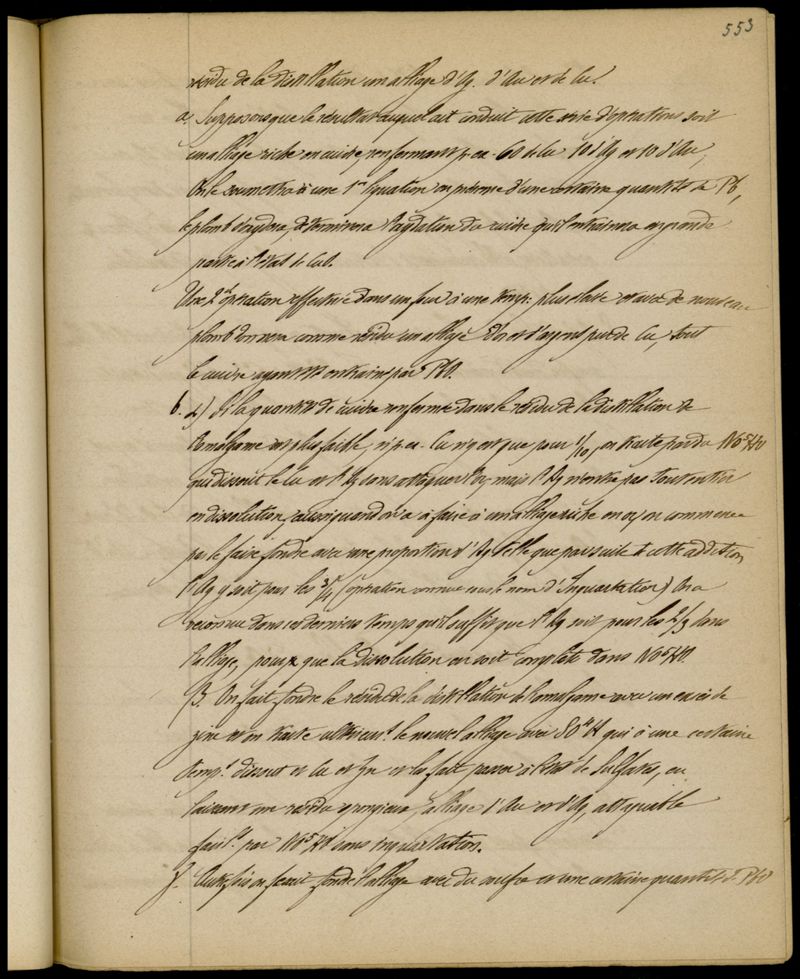 553
résidu de la distillation un alliage d'Ag. d'Au et de Cu.
a. Supposons que le résultat auquel ait conduit cette série d'opérations soit
un alliage riche en cuivre, renfermant p. ex. 60 de Cu 10 d'Ag et 10 d'Au,
On le soumettra à une 1re liquation en présence d'une certaine quantité de Pb,
le plomb s'oxydera, déterminera l'oxydation du cuivre qu'il entrainera en grande
partie à l'état de CuO.
Une 2e opération effectuée dans un four à une temp. plus élevée et avec de nouveau
plomb donnera comme résidu un alliage d'or et d'argent pur de Cu, tout
le cuivre ayant été entrainé par PbO.
b. α) Si la quantité de cuivre renfermée dans le résidu de la distillation de
l'amalgame est plus faible, si p. ex. Cu n'y est que pour 1/10, on traite par du NO5HO
qui dissout le Cu et l'Ag sans attaquer l'or, mais l'Ag n'entre pas tout entier
en dissolution, aussi quand on a à faire à un alliage riche en or, on commence
par le faire fondre avec une proportion d'Ag telle que par suite de cette addition
l'Ag y soit pour les 3/4 (opération connue sous le nom d'Inquartation) On a
reconnu dans ces derniers temps qu'il suffit que l'Ag soit pour les 2/3 dans
l'alliage, pour que la dissolution en soit complète dans NO5HO.
β. On fait fondre le résidu de la distillation de l'amalgame avec un excès de
zinc et on traite ultérieurt. le nouvel alliage avec SO4H qui à une certaine
temp. dissout et Cu et Zn et les fait passer à l'état de Sulfates, en
laissant un résidu spongieux, alliage d'Au et d'Ag, attaquable
facilt. par NO5HO sans inquartation.
γ. Autrefois on faisait fondre l'alliage avec du soufre et une certaine quantité de PbO